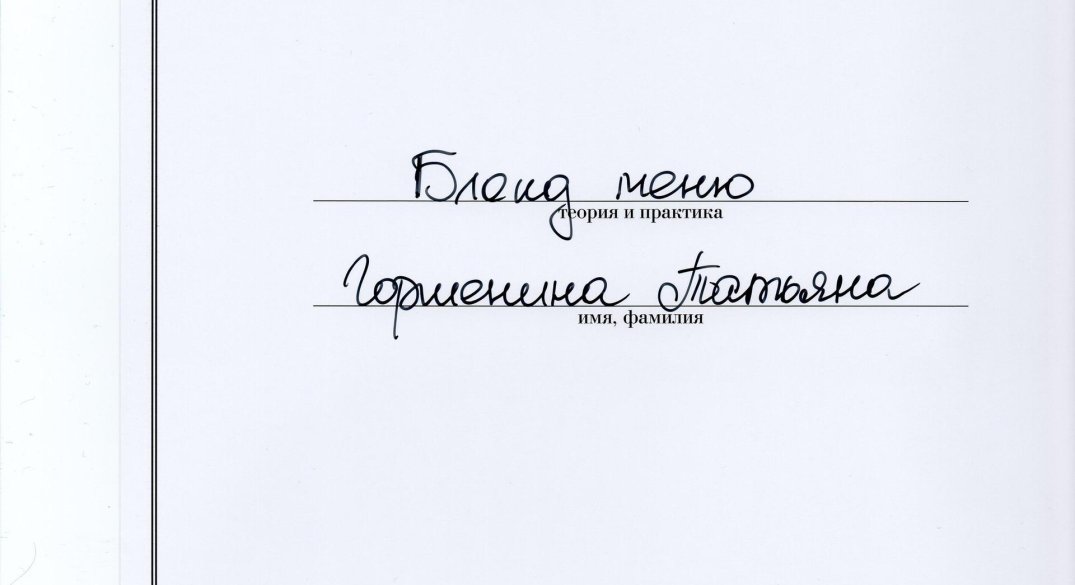 Бленд меню
теория и практика
Горменина Татьяна
имя, фамилия